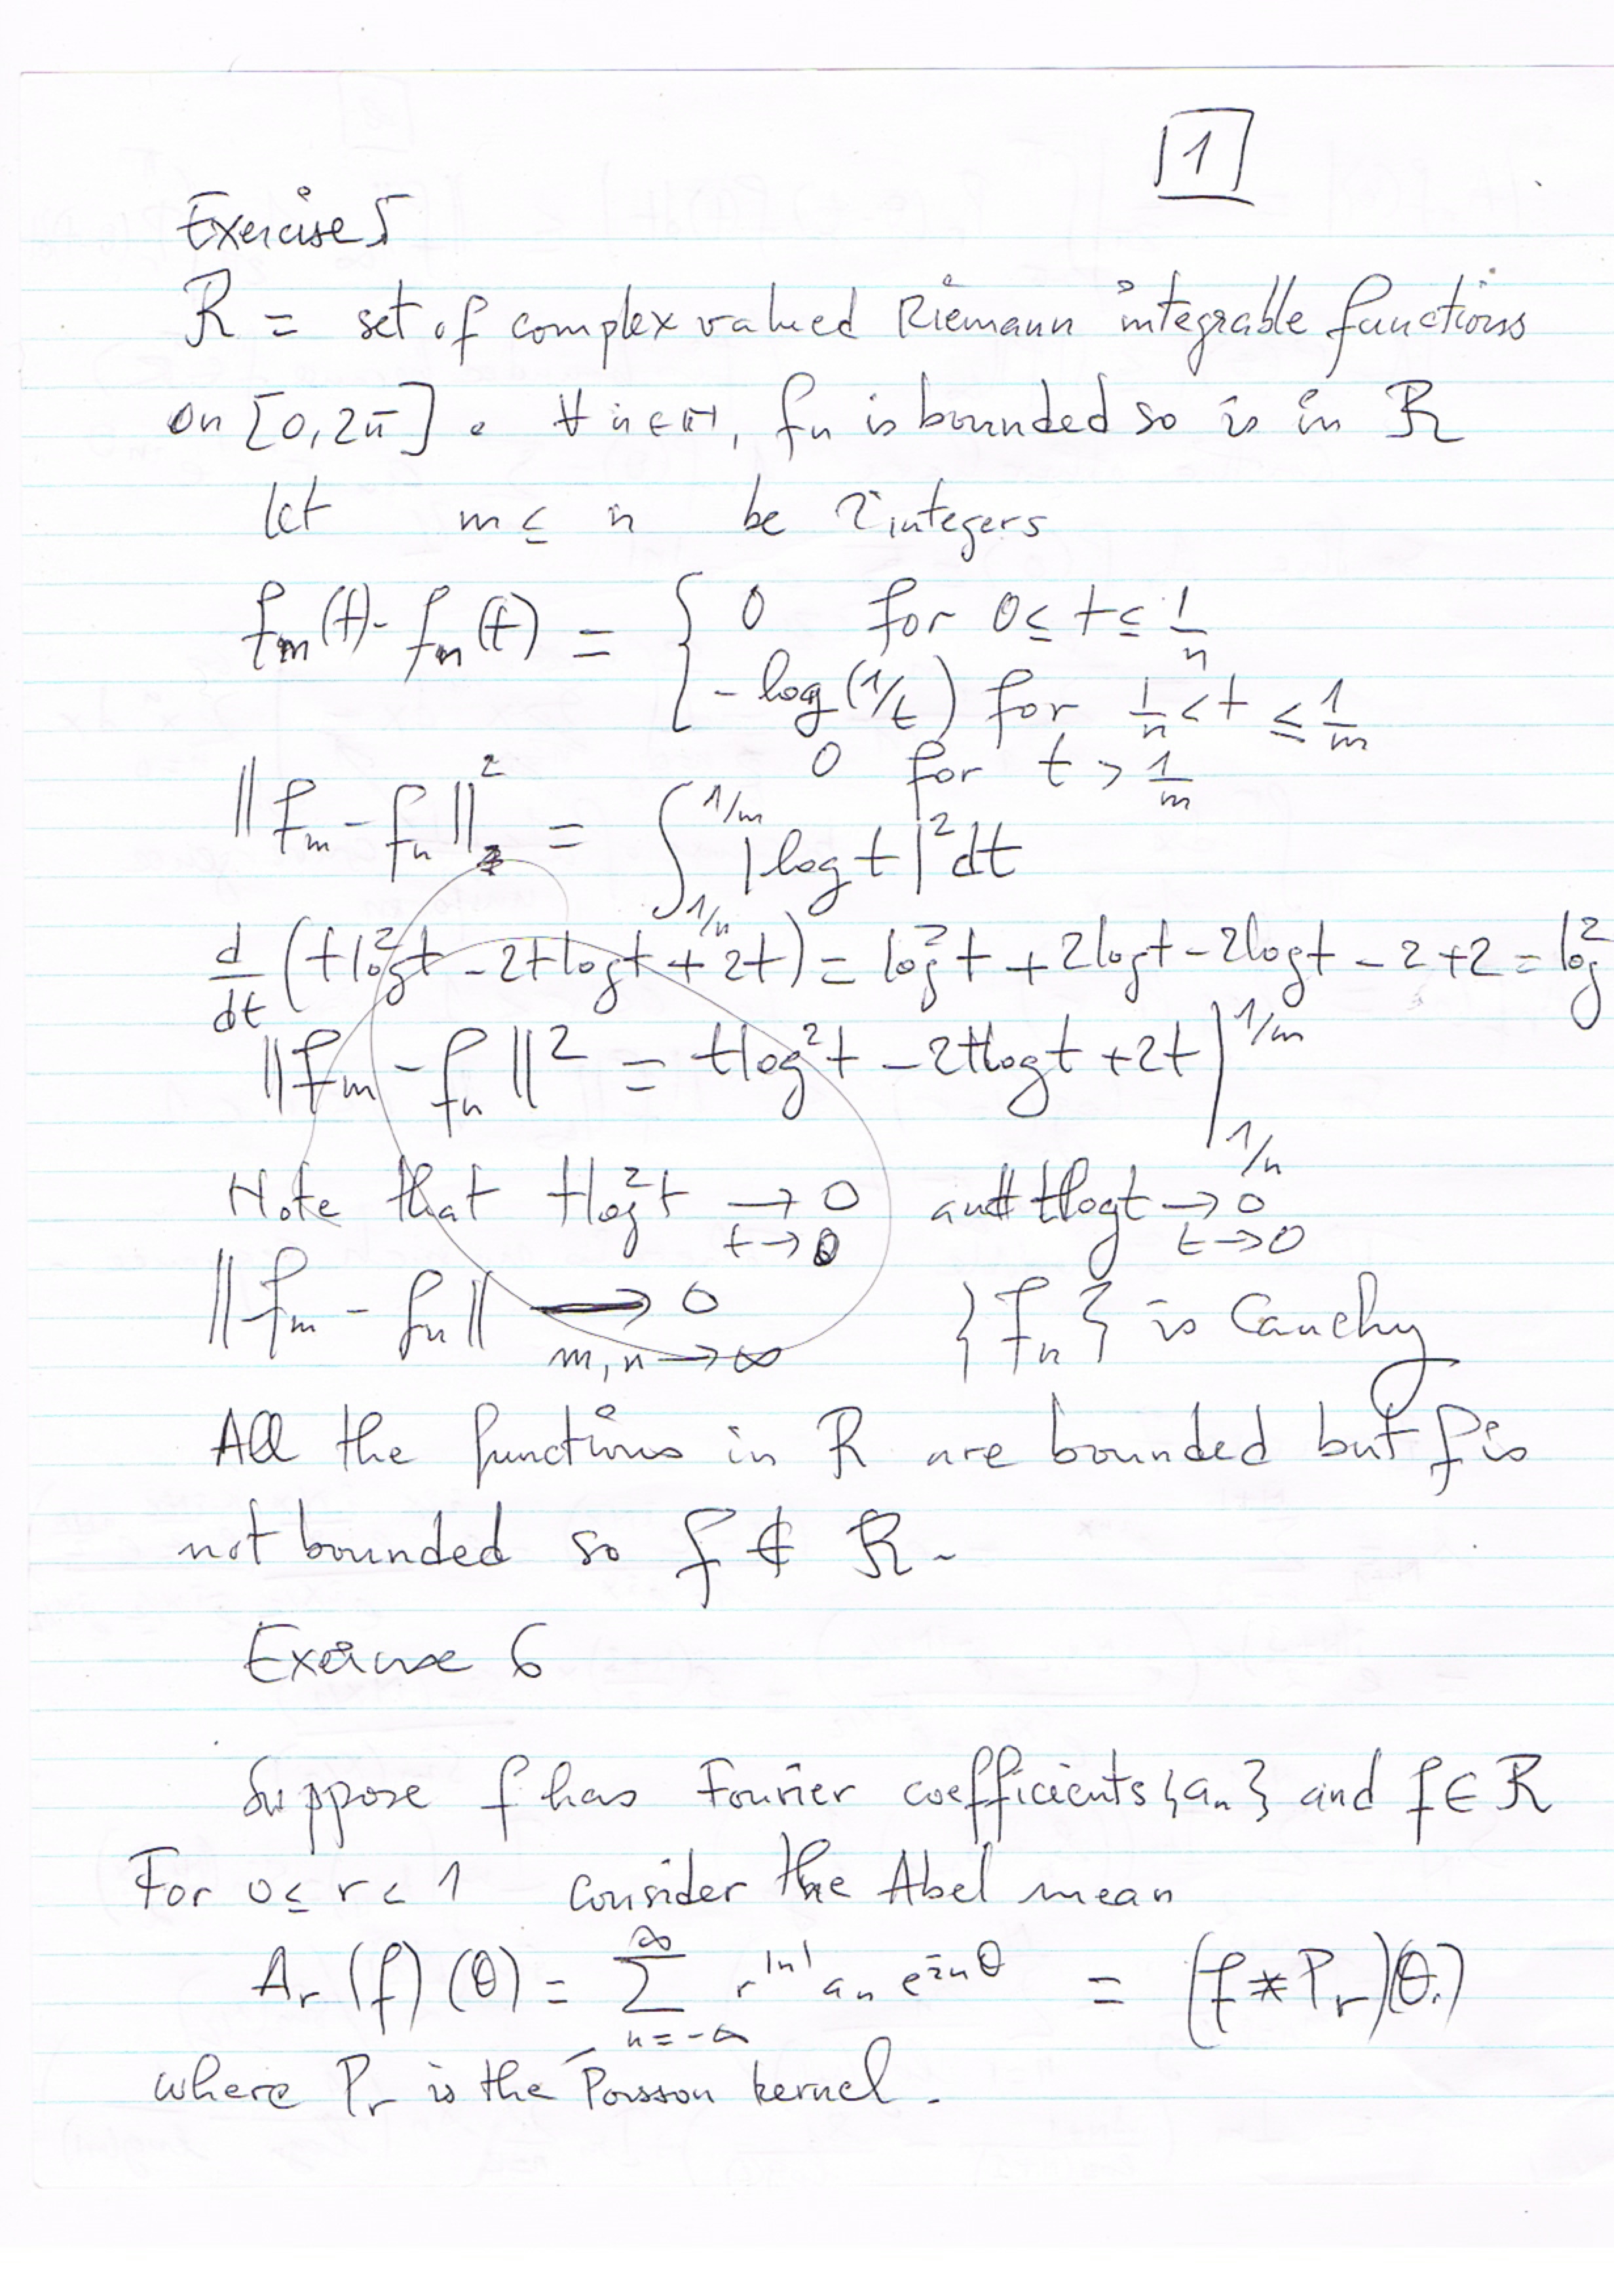 1
Exercise 5
R = set of complex valued Riemann integrable functions
on [0, 2π]. ∀ n ∈ ℕ, fn is bounded so is in R
let m ≤ n be 2 integers
fm(t) - fn(t) = { 0 for 0 ≤ t ≤ 1/n
- log(1/t) for 1/n < t ≤ 1/m
0 for t > 1/m
||fm - fn||₂² = ∫_{1/n}^{1/m} |log t|² dt
d/dt (t log² t - 2t log t + 2t) = log² t + 2 log t - 2 log t - 2 + 2 = log²
||fm - fn||² = t log² t - 2t log t + 2t |_{1/n}^{1/m}
Note that t log² t → 0 t → 0 and t log t → 0 t → 0
||fm - fn|| → 0 m, n → ∞ {fn} is Cauchy
All the functions in R are bounded but f is
not bounded so f ∉ R.
Exercise 6
Suppose f has Fourier coefficients {an} and f ∈ R
For 0 ≤ r < 1 consider the Abel mean
Ar(f)(θ) = ∑_{n=-∞}^{∞} r^{|n|} an e^{inθ} = (f * Pr)(θ)
where Pr is the Poisson kernel.